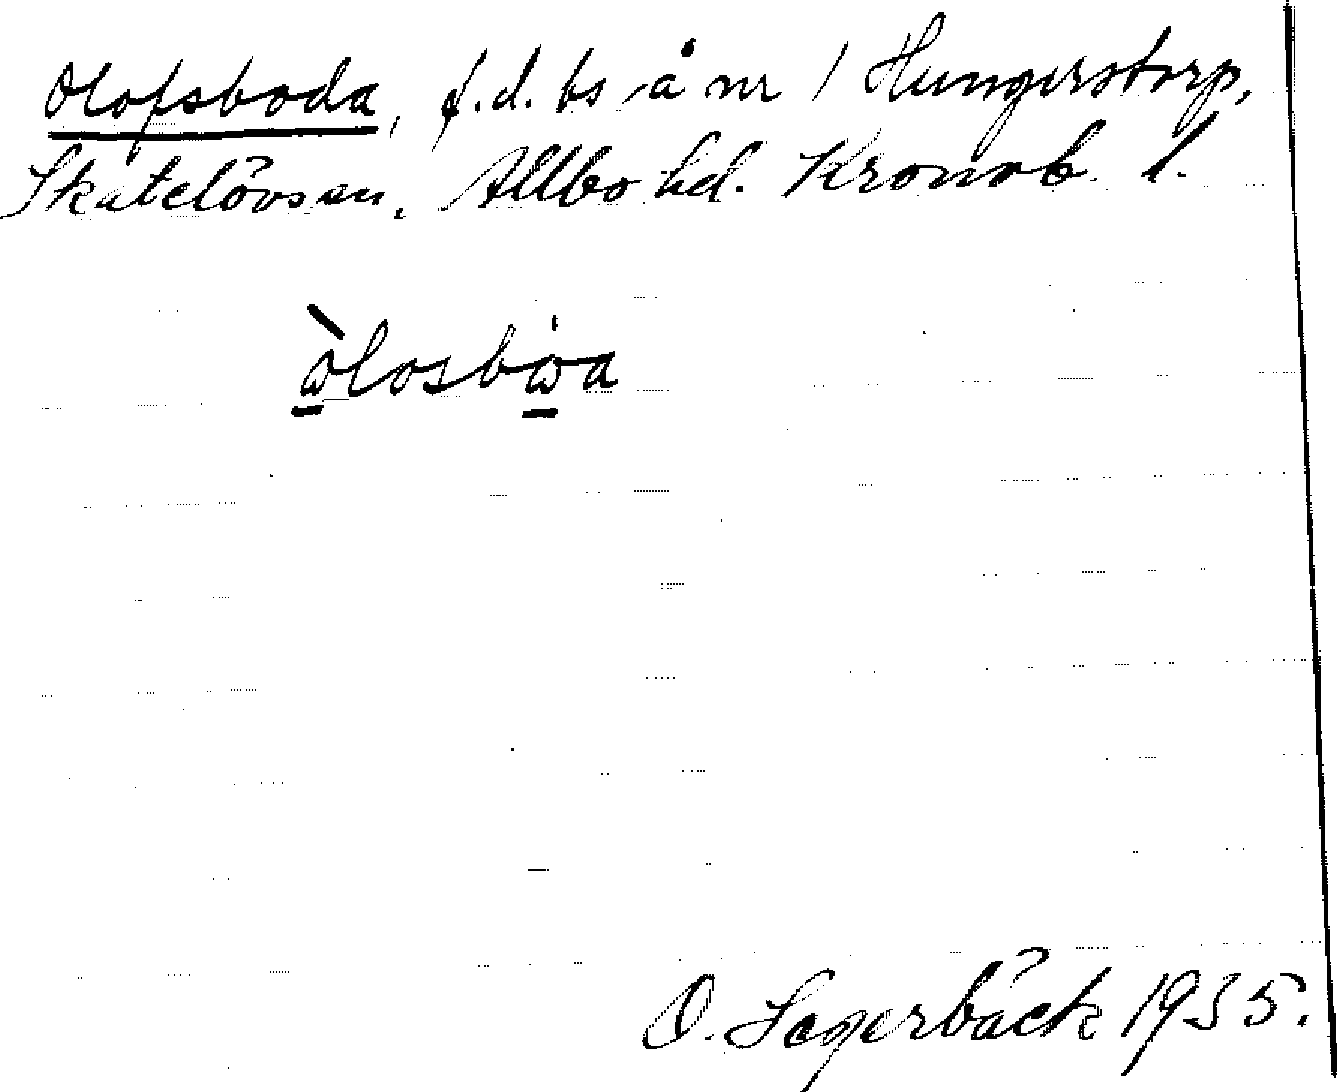 Olofsboda, f.d. bs å nr 1 Hungerstorp,
Skatelövs sn, Allbo hd. Kronob. l.
ὼlosbω̍a
O. Lagerbäck 1935.